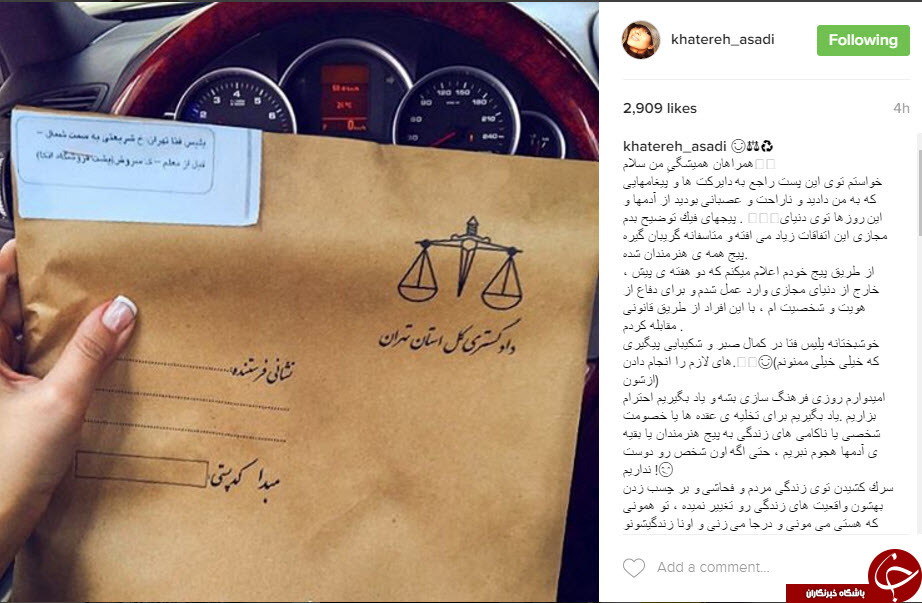 پلیس فتا تهران خ شریعتی به سمت شمال –
قبل از معلم – خ سروش (پشت فروشگاه اتکا)
دادگستری کل استان تهران
نشانی فرستنده:
مبدا کدپستی:
khatereh_asadi
Following
2,909 likes
4h
khatereh_asadi 😊⚖♻
همراهان همیشگیِ من سلام
خواستم توی این پست راجع به دایرکت ها و پیغامهایی
که به من دادید و ناراحت و عصبانی بودید از آدمها و
پیجهای فیك توضیح بدم . این روزها توی دنیای
مجازی این اتفاقات زیاد می افته و متاسفانه گریبان گیره
پیج همه ی هنرمندان شده.
از طریق پیج خودم اعلام میکنم که دو هفته ی پیش ،
خارج از دنیای مجازی وارد عمل شدم و برای دفاع از
هویت و شخصیت ام ، با این افراد از طریق قانونی
مقابله کردم .
خوشبختانه پلیس فتا در کمال صبر و شکیبایی پیگیری
های لازم را انجام دادن.😊(که خیلی خیلی ممنونم
ازشون)
امیدوارم روزی فرهنگ سازی بشه و یاد بگیریم احترام
بزاریم .یاد بگیریم برای تخلیه ی عقده ها یا خصومت
شخصی یا ناکامی های زندگی به پیج هنرمندان یا بقیه
ی آدمها هجوم نبریم ، حتی اگه اون شخص رو دوست
نداریم !😏
سرك کشیدن توی زندگی مردم و فحاشی و بر چسب زدن
بهشون واقعیت های زندگی رو تغییر نمیده ، تو همونی
که هستی می مونی و درجا می زنی و اونا زندگیشونو
Add a comment...
باشگاه خبرنگاران